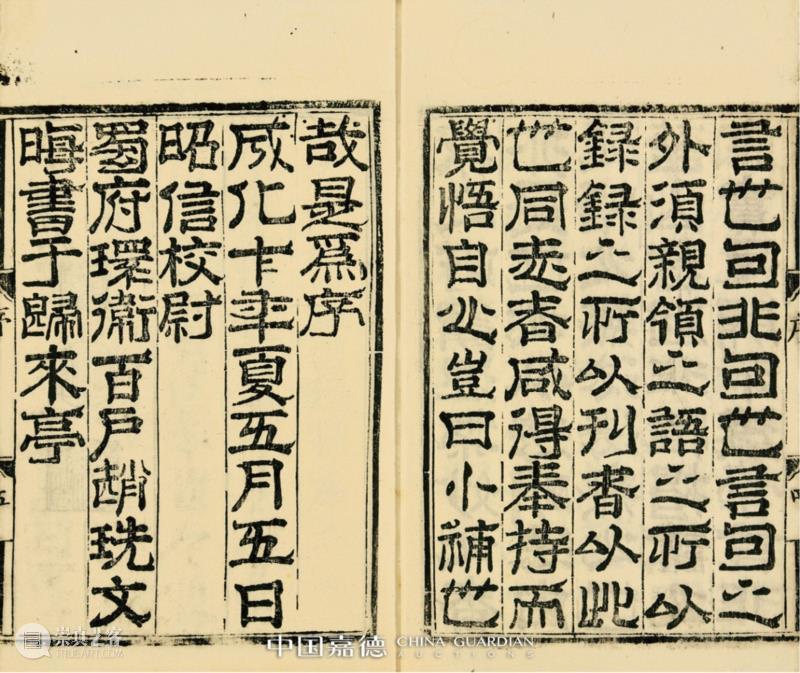 言也句非句也言句之
外須親領之語之所以
録録之所以刊者以此
也同志者咸得奉持而
覺悟自心豈曰小補也
哉是爲序
成化十年夏五月五日
昭信校尉
蜀府環衛百戶趙珖文
晦書于歸來亭
序
五
序
四
中国嘉德 CHINA GUARDIAN
AUCTIONS